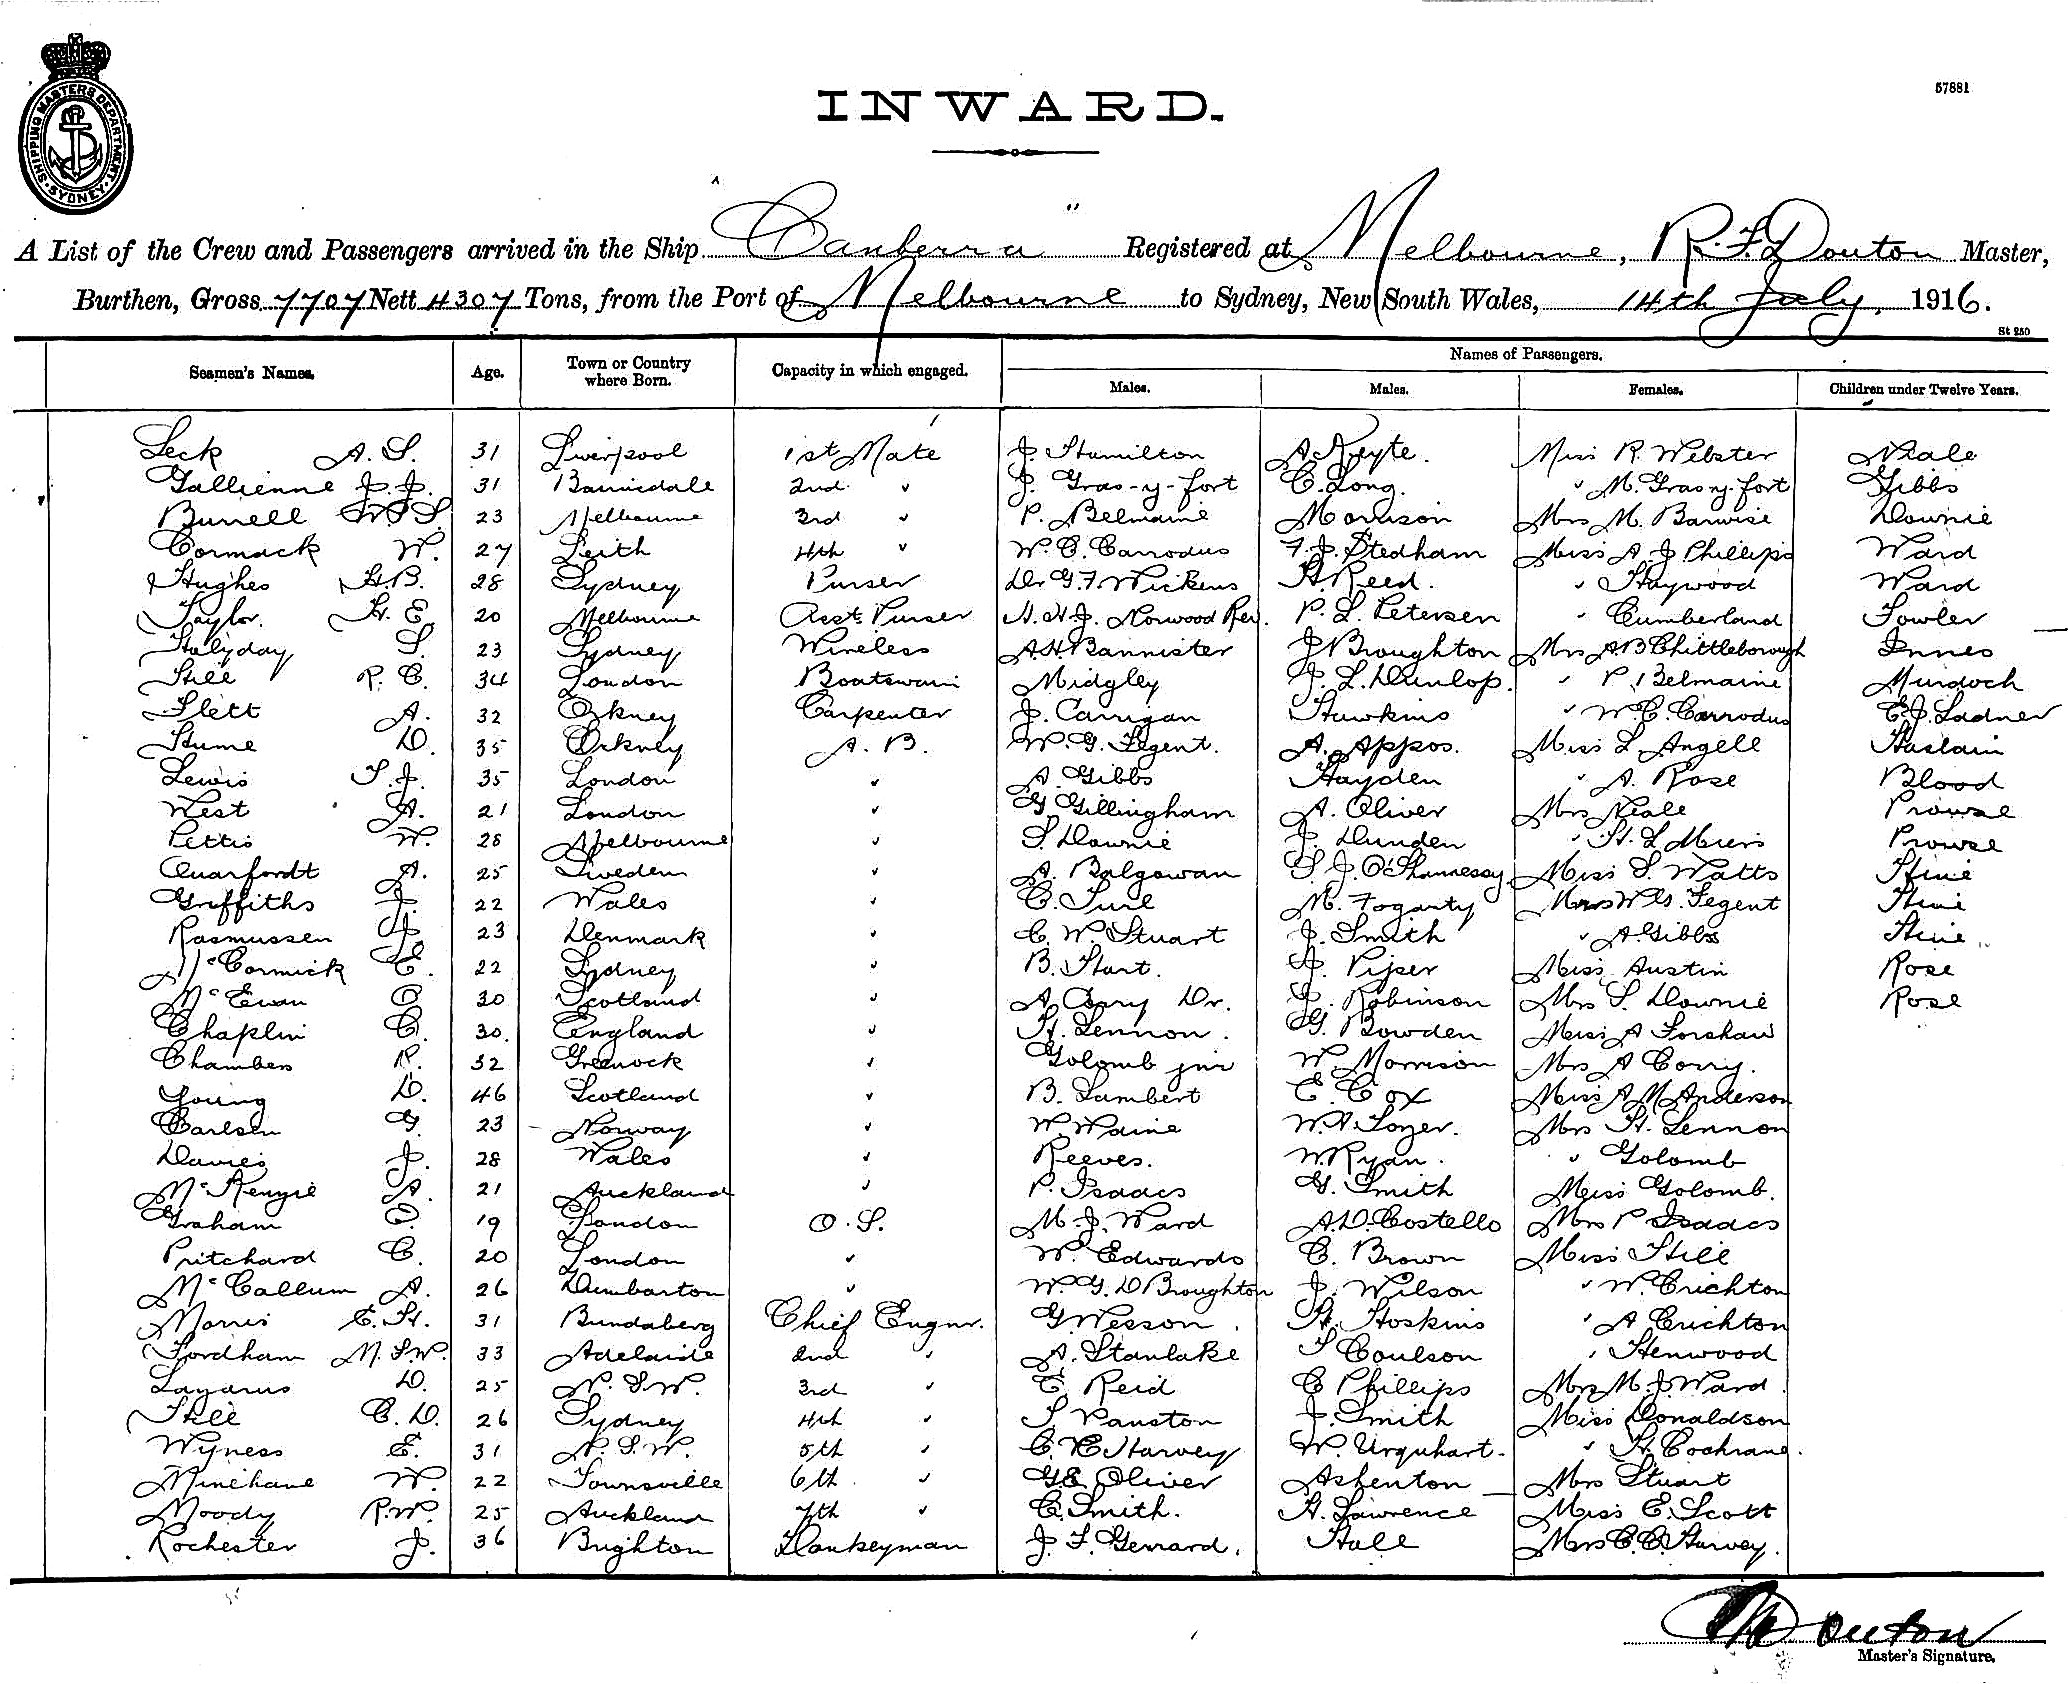 INWARD.
57881
SHIPPING MASTERS DEPARTMENT SYDNEY
A List of the Crew and Passengers arrived in the Ship "Canberra" Registered at Melbourne, R. F. Douton Master,
Burthen, Gross 7707 Nett 4307 Tons, from the Port of Melbourne to Sydney, New South Wales, 14th July, 1916.
St 250
Names of Passengers.
Seamen's Names. Age. Town or Country where Born. Capacity in which engaged. Males. Males. Females. Children under Twelve Years.
Leck A. S. 31 Liverpool 1st Mate J. Hamilton A. Keyte. Miss R. Webster Neale
Gallienne J. J. 31 Bairnsdale 2nd " J. Gras-y-fort C. Long. " M. Gras-y-fort Gibbs
Burrell W S 23 Melbourne 3rd " P. Belmaine Morrison Mrs M. Barwise Downie
Cormack W. 27 Leith 4th " W. C. Carrodus F. J. Stedham Miss A J Phillips Ward
Hughes H.B. 28 Sydney Purser Dr G. F. Wickens H. Reed. " Haywood Ward
Taylor. H. E. 20 Melbourne Asst. Purser H. H. J. Norwood Rev. P. L. Petersen " Cumberland Fowler
Halyday S. 23 Sydney Wireless A H Bannister J Broughton Mrs A B Chittleborough Innes
Hill R. C. 34 London Boatswain Midgley J. L. Dunlop. " P. Belmaine Murdoch
Slett A. 32 Orkney Carpenter J. Carrigan Hawkins " W. C. Carrodus E. J. Ladner
Hume D. 35 Orkney A. B. W. G. Fegent. A. Appos. Miss L. Angell Haslam
Lewis T. J. 35 London " A. Gibbs Hayden " A. Rose Blood
West A. 21 London " G Gillingham A. Oliver Mrs Neale Prowse
Pettis W. 28 Melbourne " S. Downie J. Dunden " H. L Miers Prowse
Quarfordt A. 25 Sweden " A. Balgowan S J. O'Shannessy Miss S. Watts Hine
Griffiths J. 22 Wales " C. Turl M. Fogarty Mrs W G. Fegent Hine
Rasmussen J. 23 Denmark " C. W. Stuart J. Smith " A. Gibbs Hine
McCormick E. 22 Sydney " B. Hart. J. Piper Miss Austin Rose
McEwan C 30 Scotland " A Corry Dr. J. Robinson Mrs S. Downie Rose
Chaplin C. 30. England " H. Lennon. G. Bowden Miss A Forshaw
Chambers R. 32 Greenock " Golomb jnr W. Morrison Mrs A Corry.
Young D. 46 Scotland " B. Lambert E. Cox Miss A M Anderson
Carlsen G. 23 Norway " W Waine W. A. Mrs H. Lennon
Davies J. 28 Wales " Reeves. W. Ryan. " Golomb
McKenzie A. 21 Auckland " P. Isaacs G. Smith Miss Golomb.
Graham C. 19 London O. S. M. J. Ward A. D. Costello Mrs P. Isaacs
Pritchard C. 20 London " W. Edwards C. Brown Miss Hill
McCallum A. 26 Dumbarton " W. G. D Broughton J. Wilson " W. Crichton
Morris E. H. 31 Bundaberg Chief Engnr. G Wesson. H. Hoskins " A Crichton
Fordham M. S. W. 33 Adelaide 2nd " A. Stanlake S Coulson " Henwood
Lazarus D. 25 N. S. W. 3rd " E. Reid C Phillips Mrs M. J. Ward.
Hill C. D. 26 Sydney 4th " S Panston J. Smith Miss Donaldson
Wyness E. 31 N. S. W. 5th " C. E Harvey W. Urquhart. " H. Cochrane.
Minehane W. 22 Townsville 6th " G. E Oliver Ashenton Mrs Stuart
Moody R. W. 25 Auckland 7th " C. Smith. H. Lawrence Miss E. Scott
Rochester J. 36 Brighton Donkeyman J. F. Gerrard. Hall Mrs C. E. Harvey.
Douton
Master's Signature.